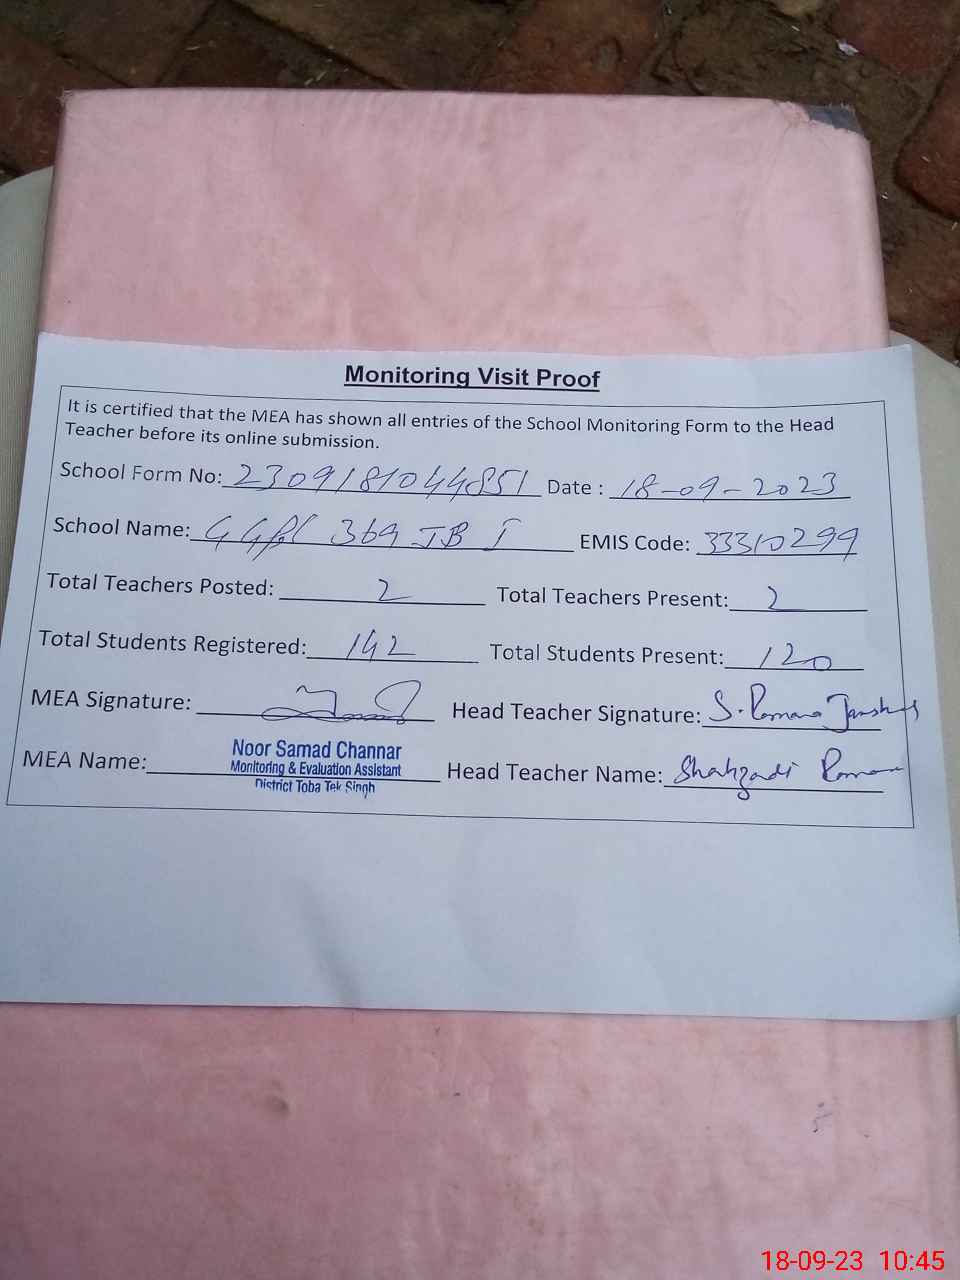 Monitoring Visit Proof
It is certified that the MEA has shown all entries of the School Monitoring Form to the Head
Teacher before its online submission.
School Form No: 2309181044851 Date : 18-09-2023
School Name: GGPS 369 JB I EMIS Code: 33310299
Total Teachers Posted: 2 Total Teachers Present: 2
Total Students Registered: 142 Total Students Present: 120
MEA Signature: Head Teacher Signature: S. Romana
MEA Name: Noor Samad Channar Head Teacher Name: Shahzadi Romana
Monitoring & Evaluation Assistant
District Toba Tek Singh
18-09-23 10:45